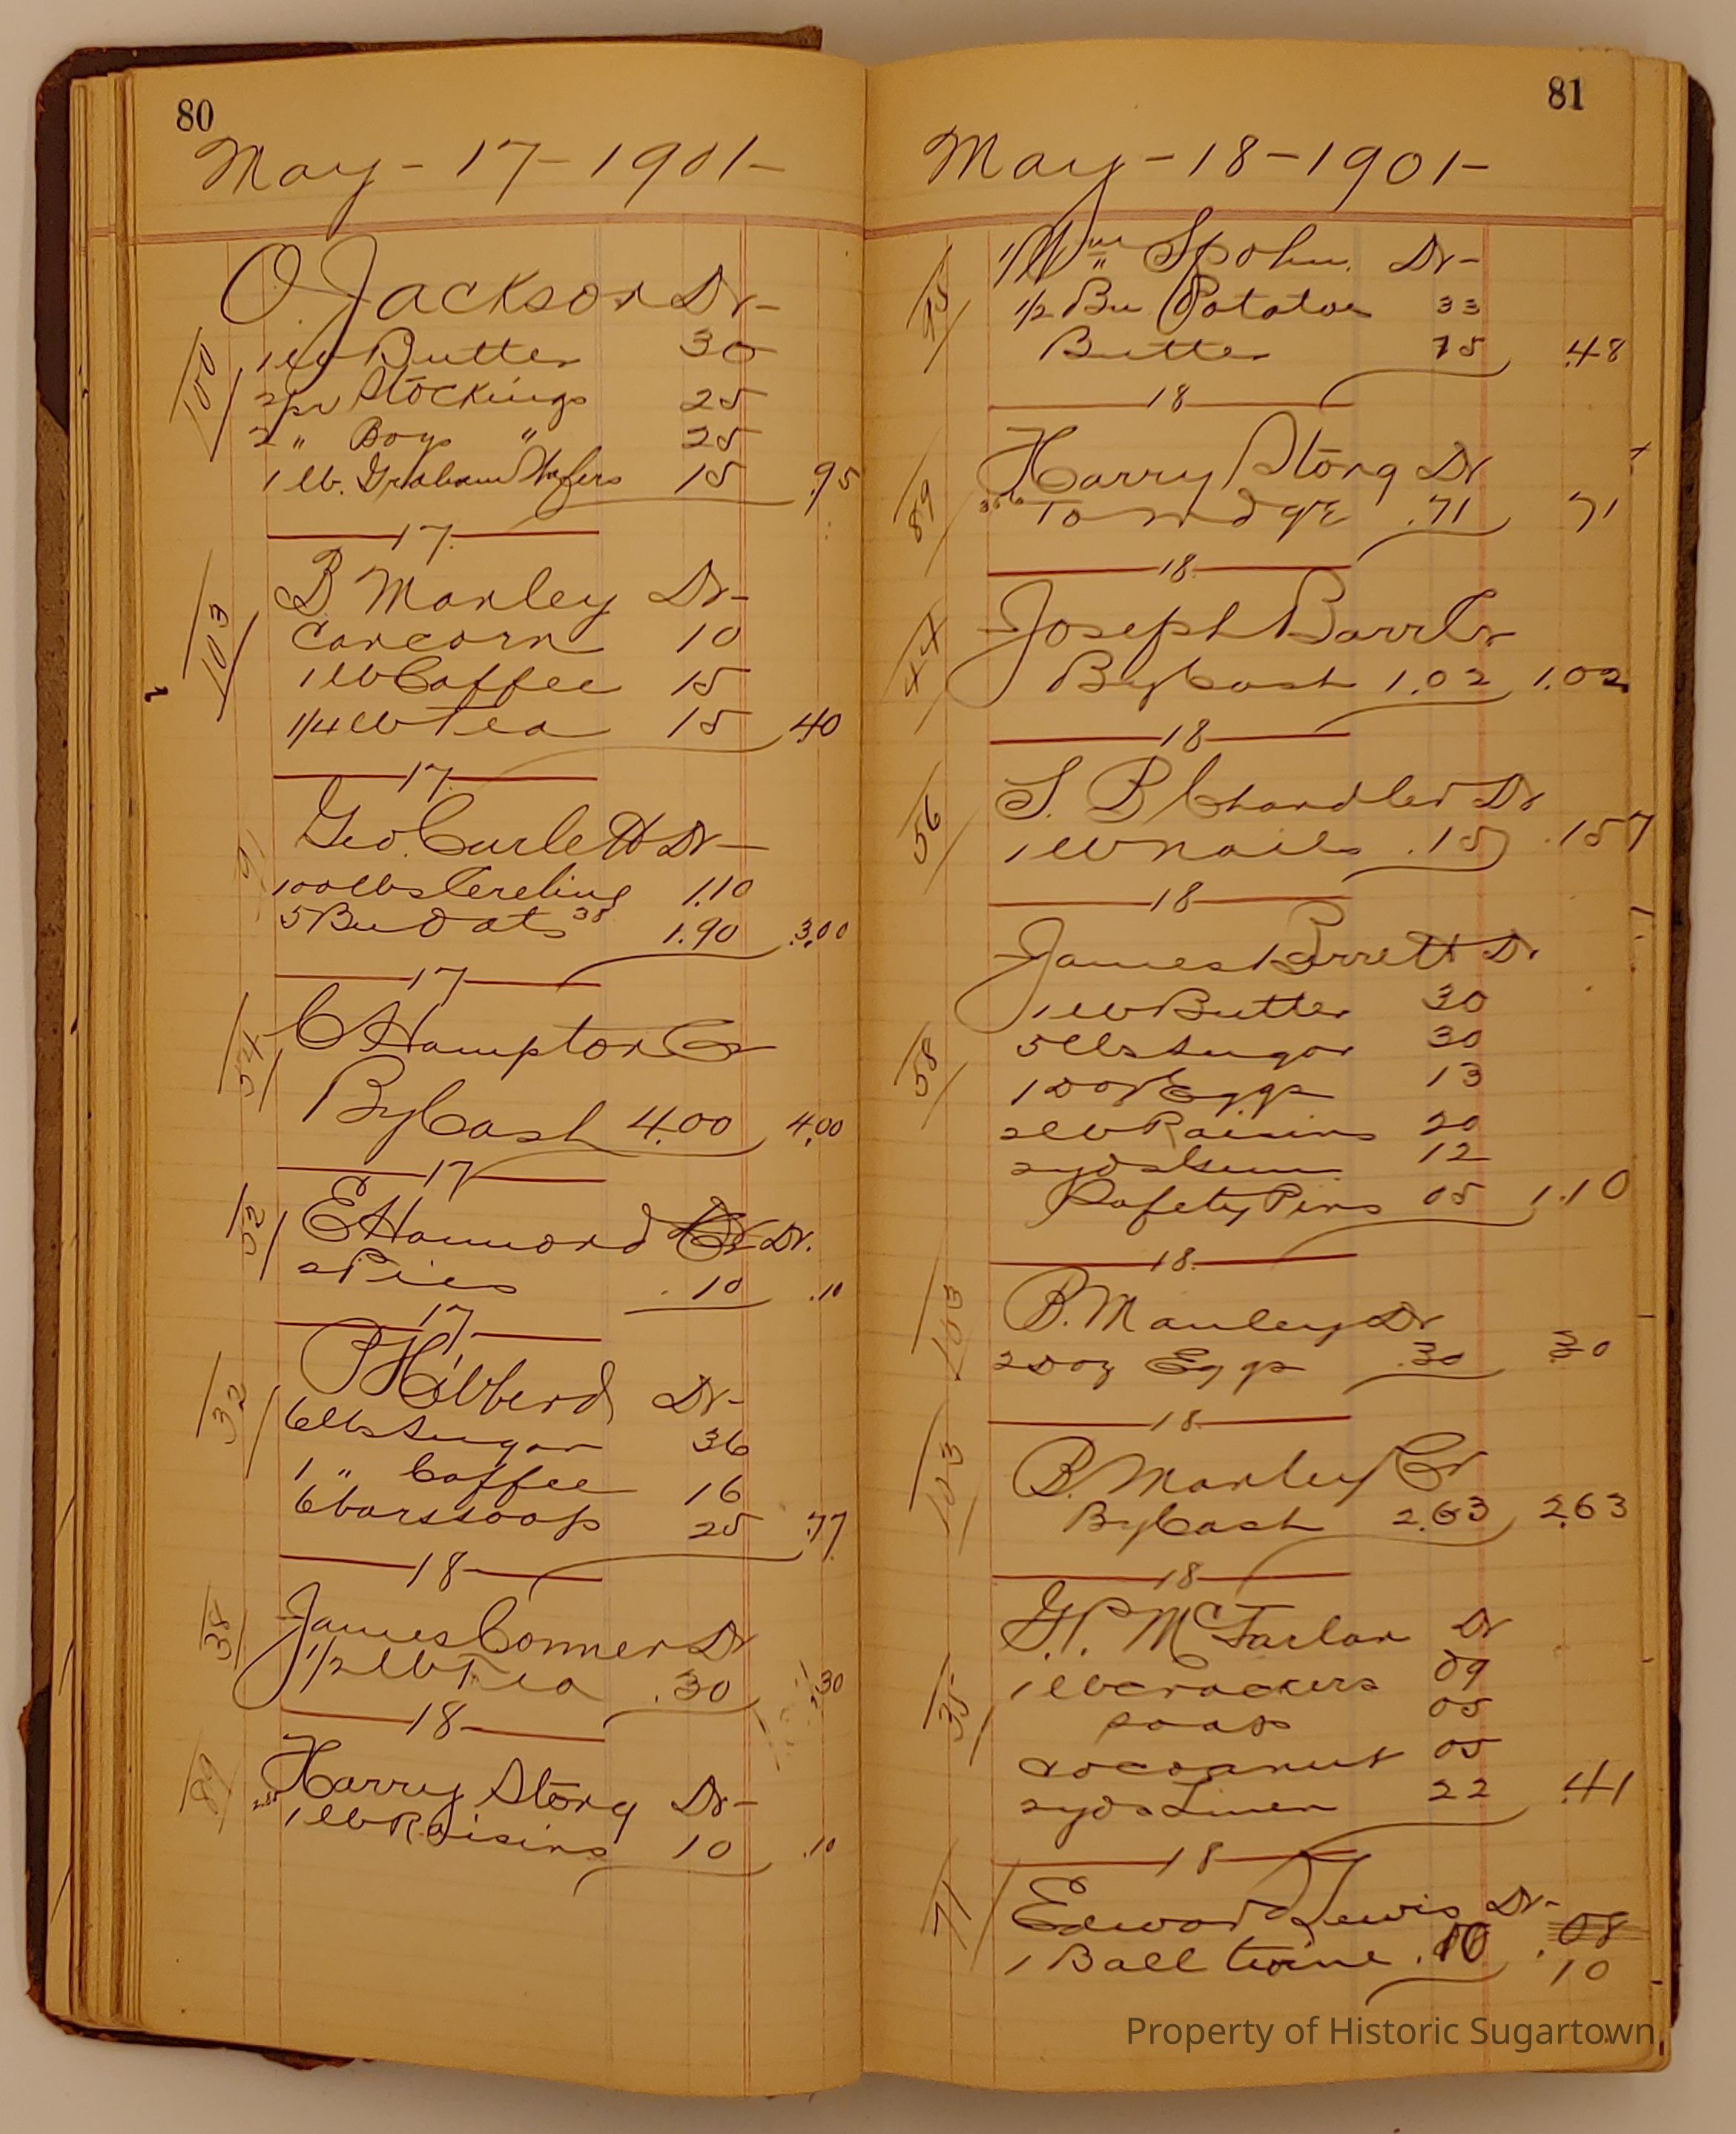 80
May - 17 - 1901 -
O. Jackson Dr -
100
1 lb Butter 30
2 pr Stockings 25
2 " Boys " 25
1 lb. Graham Wafers 15 .95
17
103
B Manley Dr -
Cancorn 10
1 lb Coffee 15
1/4 lb Tea 15 .40
17
91
Geo. Curlett Dr -
100 lbs 1.10
5 Bu Oats 38 1.90 3.00
17
54
C Hampton Cr
By Cash 4.00 4.00
17
52
E Hammond Cr Dr.
2 Pies .10 .10
17
32
P Hibberd Dr -
6 lbs Sugar 36
1 " Coffee 16
6 bars soap 25 .77
18
38
James Conner Dr
1/2 lb Tea .30 .30
18
89
Harry Storg Dr -
1 lb Raisins 10 .10
81
May - 18 - 1901 -
95
Wm Spohn. Dr -
1/2 Bu Potatoes 33
Butter 15 .48
18
89
Harry Storg Dr
To mdge .71 71
18
44
Joseph Barr Cr
By Cash 1.02 1.02
18
56
S. B Chandler Dr
1 lb nails .15 .15
18
58
James Barrett Dr
1 lb Butter 30
5 lbs Sugar 30
1 Doz Eggs 13
2 lb Raisins 20
2 yds 12
Safety Pins 05 1.10
18
103
B. Manley Dr
2 Doz Eggs .30 .30
18
103
B. Manley Cr
By Cash 2.63 2.63
18
35
G. P. McFarlan Dr
1 lb crackers 09
soap 05
cocoanut 05
2 yds Linen 22 .41
18
71
Edward Lewis Dr -
1 Ball twine .10 .08
10
Property of Historic Sugartown